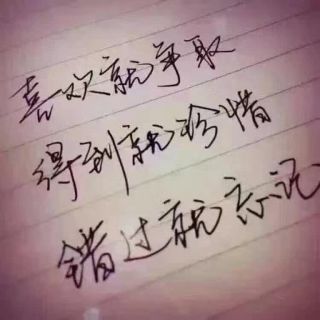 喜欢就争取
得到就珍惜
错过就忘记